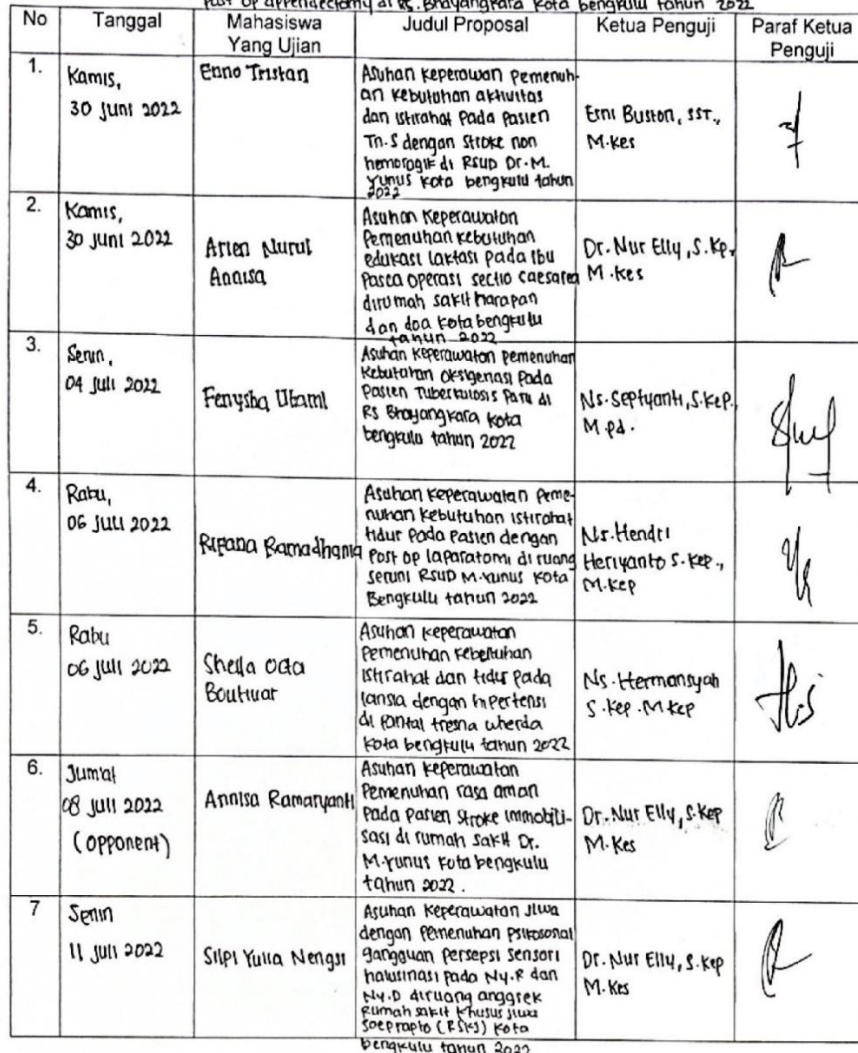 Post op appendectomy di RS. Bhayangkara kota bengkulu tahun 2022
No Tanggal Mahasiswa Yang Ujian Judul Proposal Ketua Penguji Paraf Ketua Penguji
1.
Kamis,
30 Juni 2022
Enno Tristan
Asuhan keperawan pemenuh-
an kebutuhan aktivitas
dan istirahat pada pasien
Tn.S dengan stroke non
hemoragik di RSUD Dr.M.
Yunus kota bengkulu tahun
2022
Erni Buston, SST.,
M.kes
2.
Kamis,
30 Juni 2022
Arien Nurul
Annisa
Asuhan keperawatan
Pemenuhan kebutuhan
edukasi laktasi pada ibu
Pasca operasi sectio caesarea
dirumah sakit harapan
dan doa kota bengkulu
tahun 2022
Dr. Nur Elly, S.Kp,
M.kes
3.
Senin,
04 Juli 2022
Fenysha Utami
Asuhan keperawatan pemenuhan
kebutuhan oksigenasi pada
Pasien Tuberkulosis Paru di
RS Bhayangkara kota
bengkulu tahun 2022
Ns. Septiyanti, S.Kep.,
M.pd.
4.
Rabu,
06 Juli 2022
Rifana Ramadhania
Asuhan keperawatan peme-
nuhan kebutuhan istirahat
tidur pada pasien dengan
Post op laparatomi di ruang
seruni RSUD M.Yunus kota
Bengkulu tahun 2022
Ns. Hendri
Heriyanto S.kep.,
M.kep
5.
Rabu
06 Juli 2022
Sheila Octa
Boutiwar
Asuhan keperawatan
Pemenuhan kebetuhan
istirahat dan tidur pada
lansia dengan hipertensi
di pantai tresna wherda
kota bengkulu tahun 2022
Ns. Hermansyah
S.kep. M.kep
6.
Jum'at
08 Juli 2022
(opponent)
Annisa Ramaryanti
Asuhan keperawatan
Pemenuhan rasa aman
pada pasien stroke immobili-
sasi di rumah sakit Dr.
M.Yunus kota bengkulu
tahun 2022.
Dr. Nur Elly, S.Kep
M.Kes
7
Senin
11 Juli 2022
Silpi Yulia Nengsi
Asuhan keperawatan Jiwa
dengan pemenuhan psikosonal
gangguan persepsi sensori
halusinasi pada Ny.R dan
Ny.D diruang anggrek
Rumah sakit khusus jiwa
Soeprapto (RSKJ) kota
bengkulu tahun 2022
Dr. Nur Elly, S.Kep
M.Kes